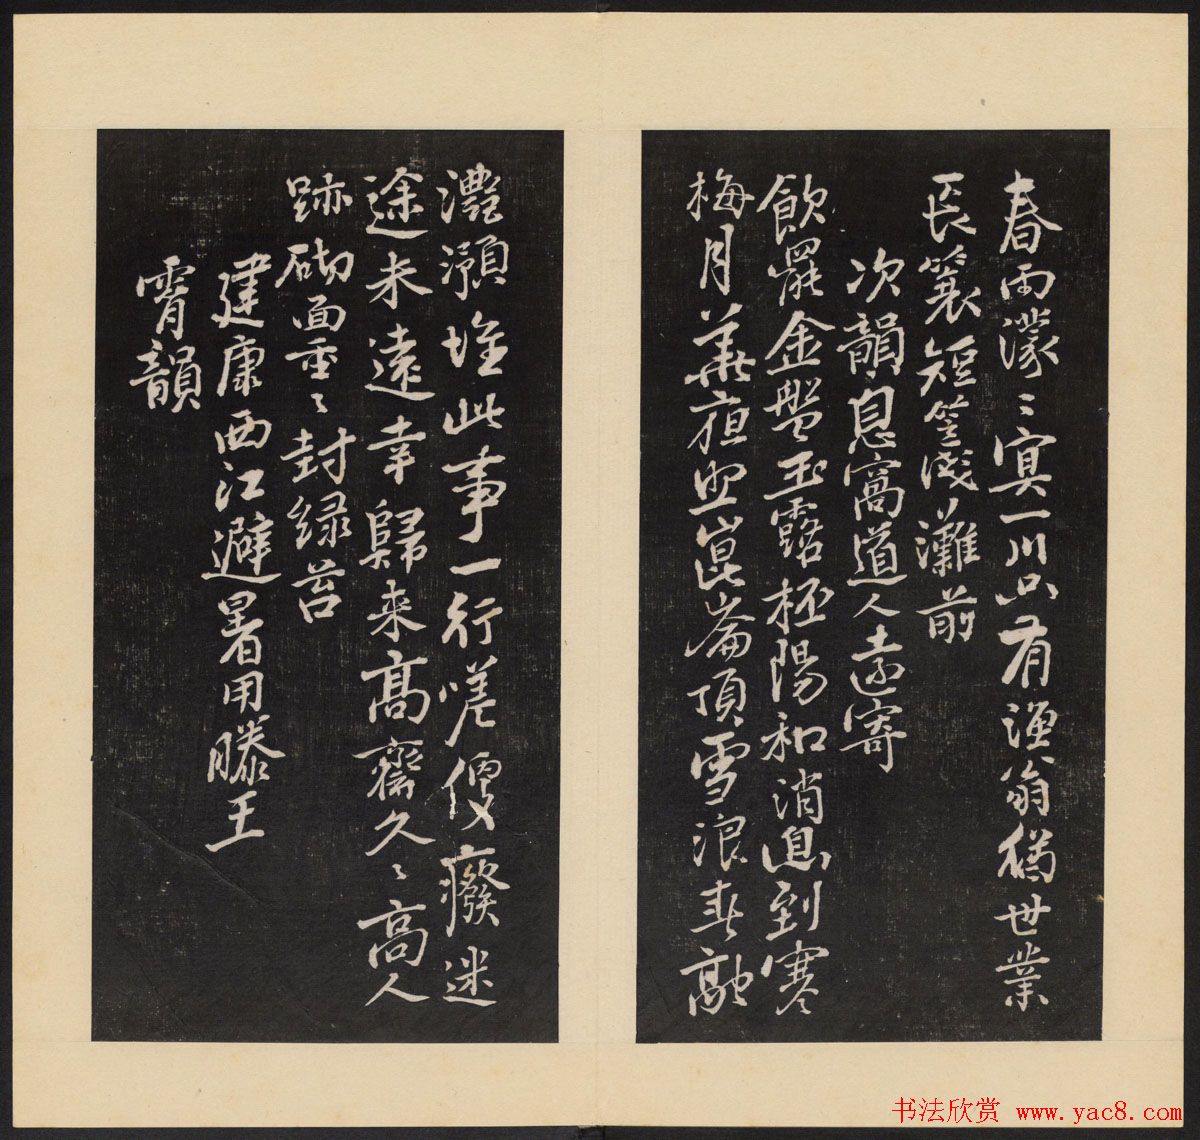 春雨濛〻冥一川只有漁翁偽世業
長簑短笠淺灘前
次韻息窩道人遠寄
飲罷金盤玉露杯陽和消息到寒
梅月華夜照崑崙頂雪浪春融
灔澦堆此事一行嗟便廢迷
途未遠幸歸来高齋久〻高人
跡砌面重〻封緑苔
建康西江避暑用滕王
霄韻
书法欣赏 www.yac8.com